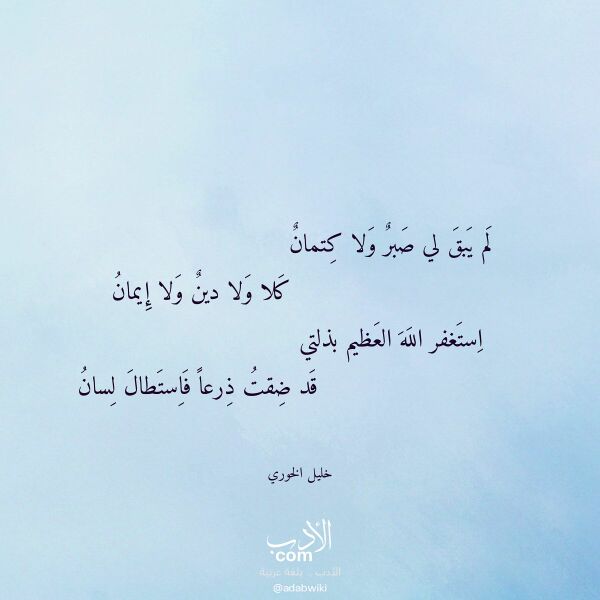 لَم يَبقَ لي صَبرٌ وَلا كِتمانٌ
كَلا وَلا دينٌ وَلا إِيمانُ
اِستَغفر اللَهَ العَظيم بذلتي
قَد ضِقتُ ذِرعاً فَاِستَطالَ لِسانُ
خليل الخوري
الأدب
com
الأدب .. بلغة عربية
@adabwiki